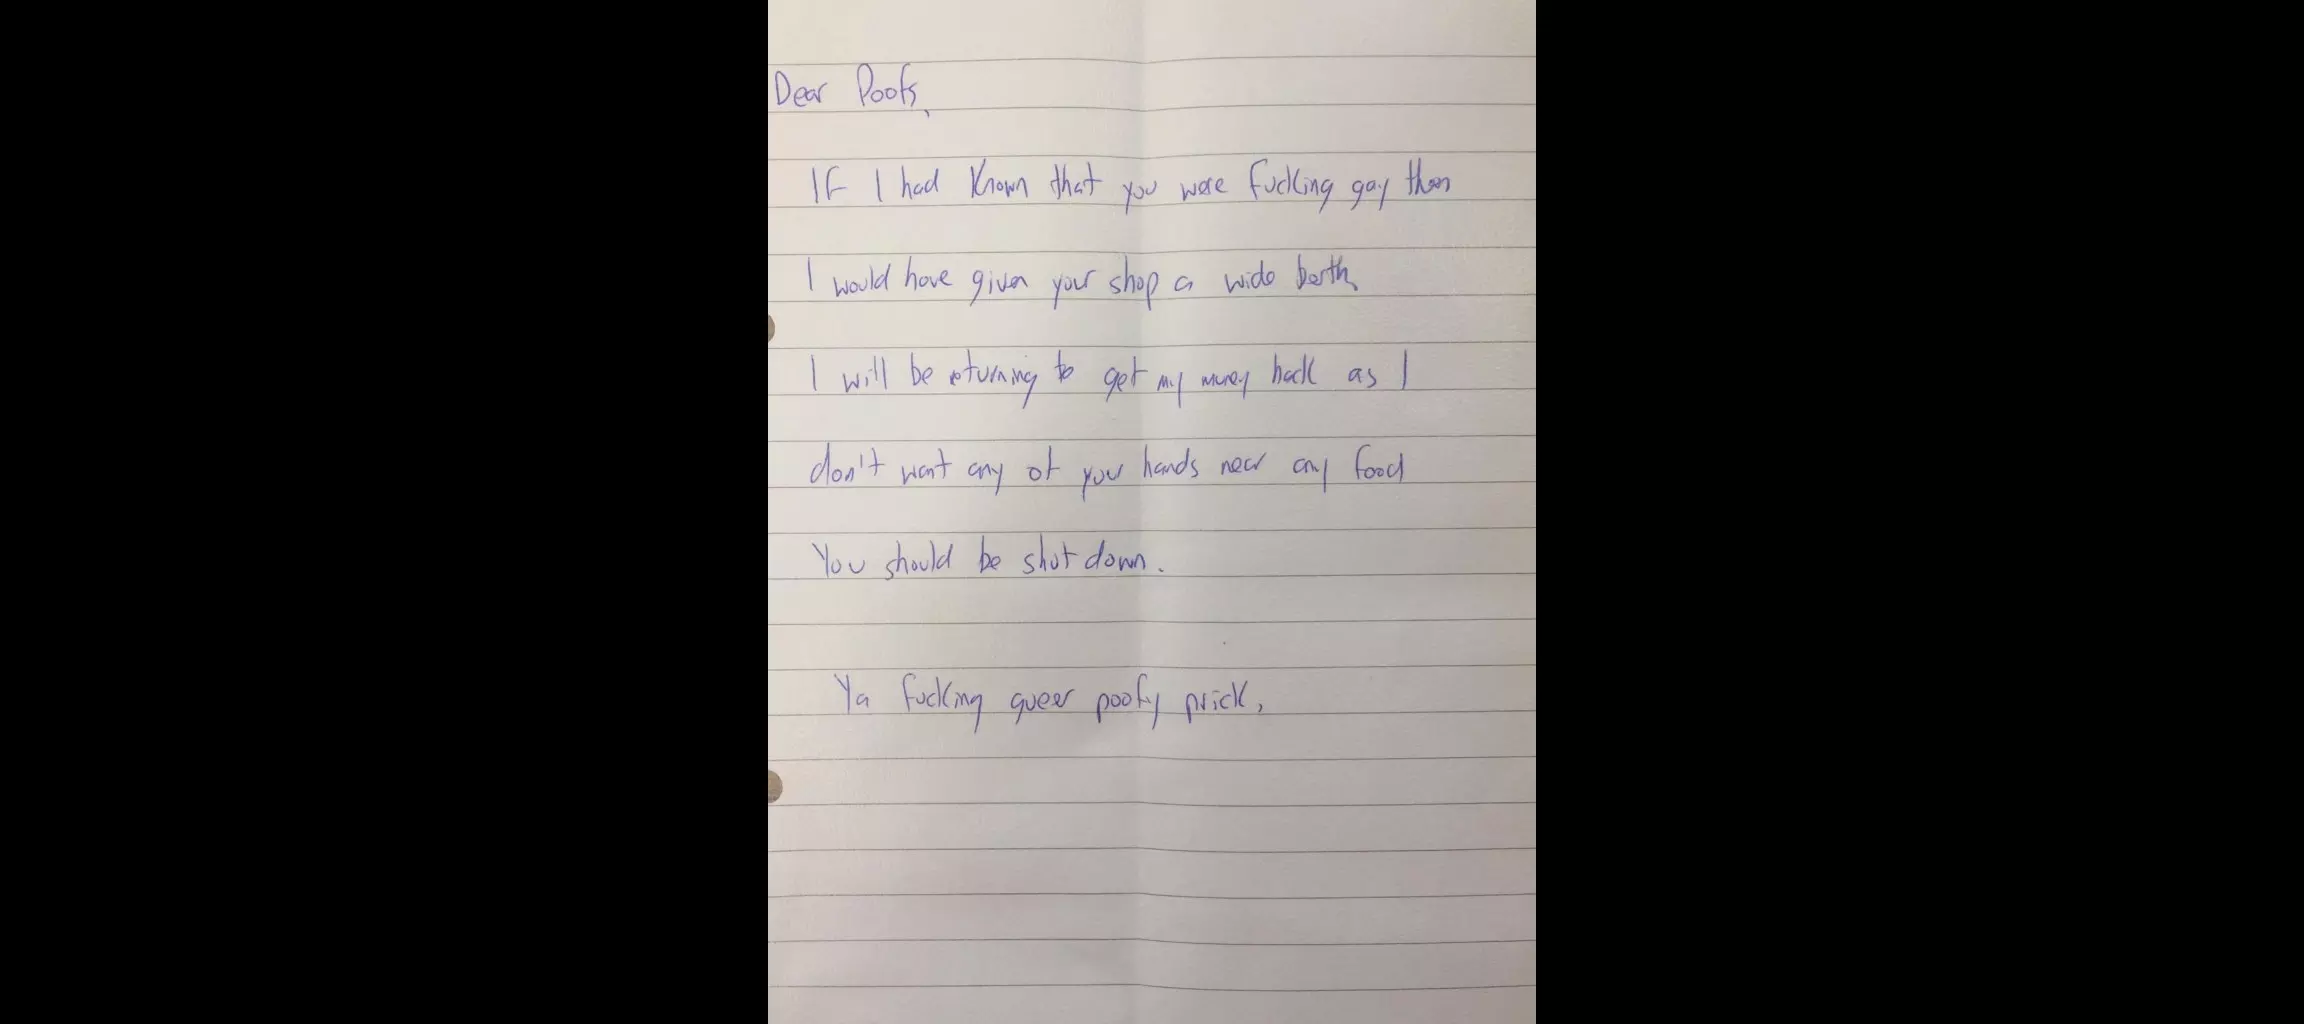 Dear Poofs,
If I had known that you were fucking gay then
I would have given your shop a wide berth
I will be returning to get my money back as I
don't want any of your hands near any food
You should be shut down.
Ya fucking queer poofy prick,